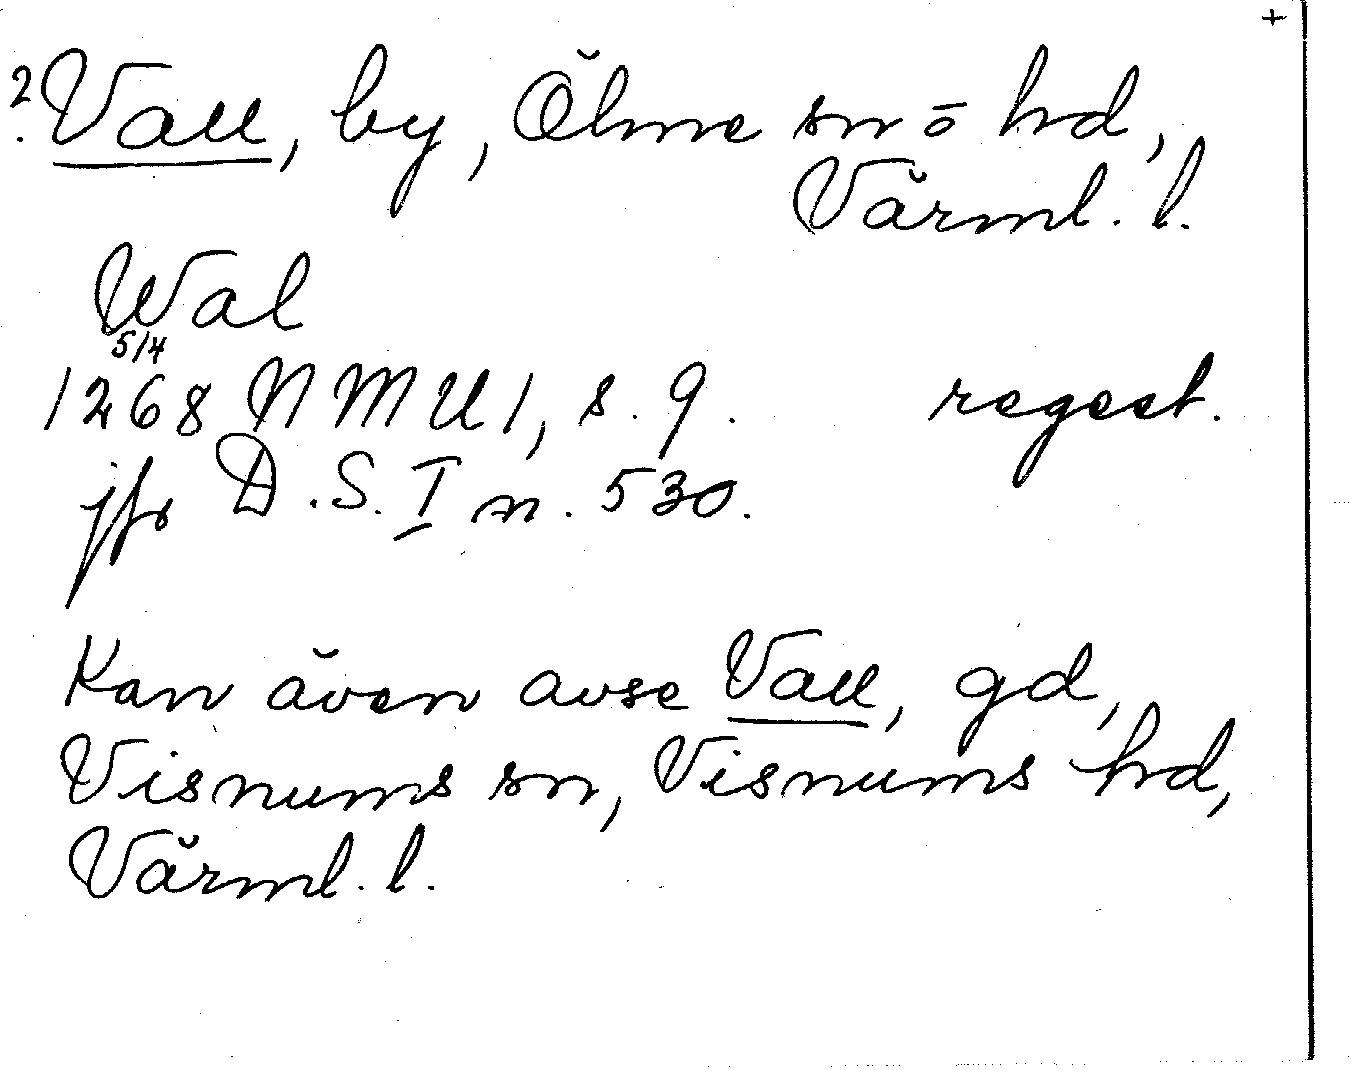 +
? Vall, by, Ölme sn o hd,
Värml. l.
Wal
5/4
1268 NMU 1, s. 9. regest.
jfr D.S. I n. 530.
Kan även avse Vall, gd,
Visnums sn, Visnums hd,
Värml. l.